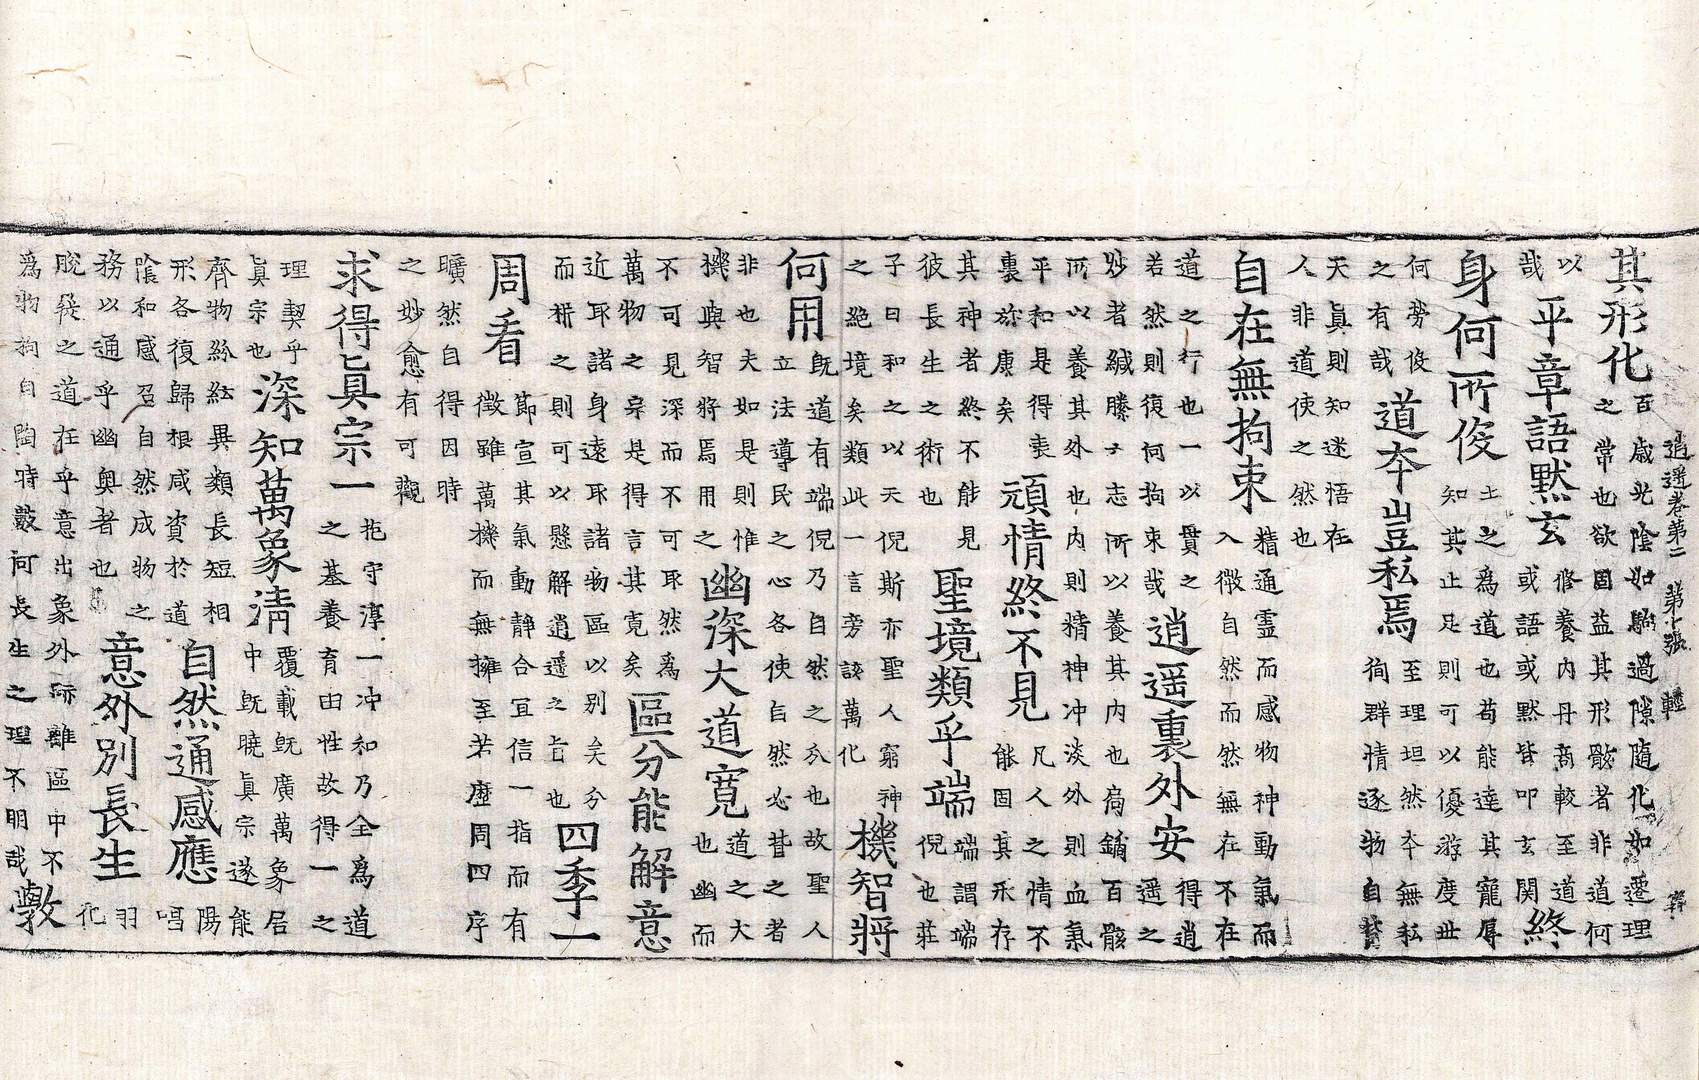 逍遥卷第二 第十張 輕
其形化
百歲光陰如駒過隙隨化如遷理
之常也欲固益其形骸者非道何
以
哉
平章語默玄
修養內丹商較至道
或語或默皆叩玄関
終
身何所伇
士之爲道也苟能達其寵辱
知其止足則可以優游度世
何勞伇
之有哉
道夲豈私焉
至理坦然夲無私
徇群情逐物自
天眞則知迷悟在
人非道使之然也
自在無拘束
精通靈而感物神動氣而
入微自然而然無在不在
道之行也一以貫之
若然則復何拘束哉
逍遥裏外安
得逍
遥之
妙者緘縢於志所以養其内也扃鐍百骸
所以養其外也内則精神冲淡外則血氣
平和是得表
裏旂康矣
頑情終不見
凡人之情不
能固其永存
其神者終不能見
彼長生之術也
聖境類乎端
端謂端
倪也莊
子曰和之以天倪斯亦聖人窮神
之絶境矣類此一言旁該萬化
機智將
何用
旣道有端倪乃自然之分也故聖人
立法導民之心各使自然必昔之者
非也夫如是則惟
機與智將焉用之
幽深大道寛
道之大
也幽而
不可見深而不可取然爲
萬物之宗是得言其寛矣
區分能解意
近取諸身遠取諸物區以別矣分
而析之則可以懸解逍遥之旨也
四季一
周看
節宣其氣動静合宜信一指而有
徵雖萬機而無擁至若歴周四序
曠然自得因時
之妙愈有可觀
求得眞宗一
抱守淳一冲和乃全爲道
之基養育由性故得一之
理契乎
眞宗也
深知萬象清
覆載旣廣萬象居
中旣曉眞宗遂能
齊物紛紜異類長短相
形各復歸根咸資於道
自然通感應
陽
唱
陰和感召自然成物之
務以通乎幽奥者也
意外別長生
羽
化
脫發之道在乎意出象外跡離區中不
爲物拘自陶時蔽何長生之理不明哉
敷